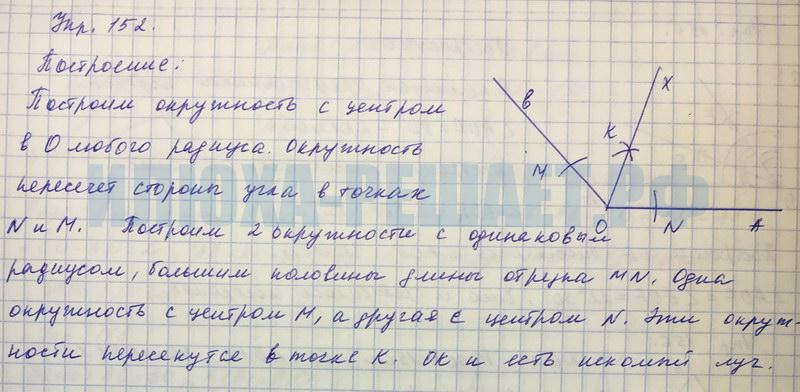 Упр. 152.
Построение:
Построим окружность с центром
в О любого радиуса. Окружность
пересечет стороны угла в точках
N и M. Построим 2 окружности с одинаковым
радиусом, большим половины длины отрезка MN. Одна
окружность с центром M, а другая с центром N. Эти окруж-
ности пересекутся в точке K. OK и есть искомый луч.
B
X
K
M
O
N
A
ИМОХА РЕШАЕТ.РФ